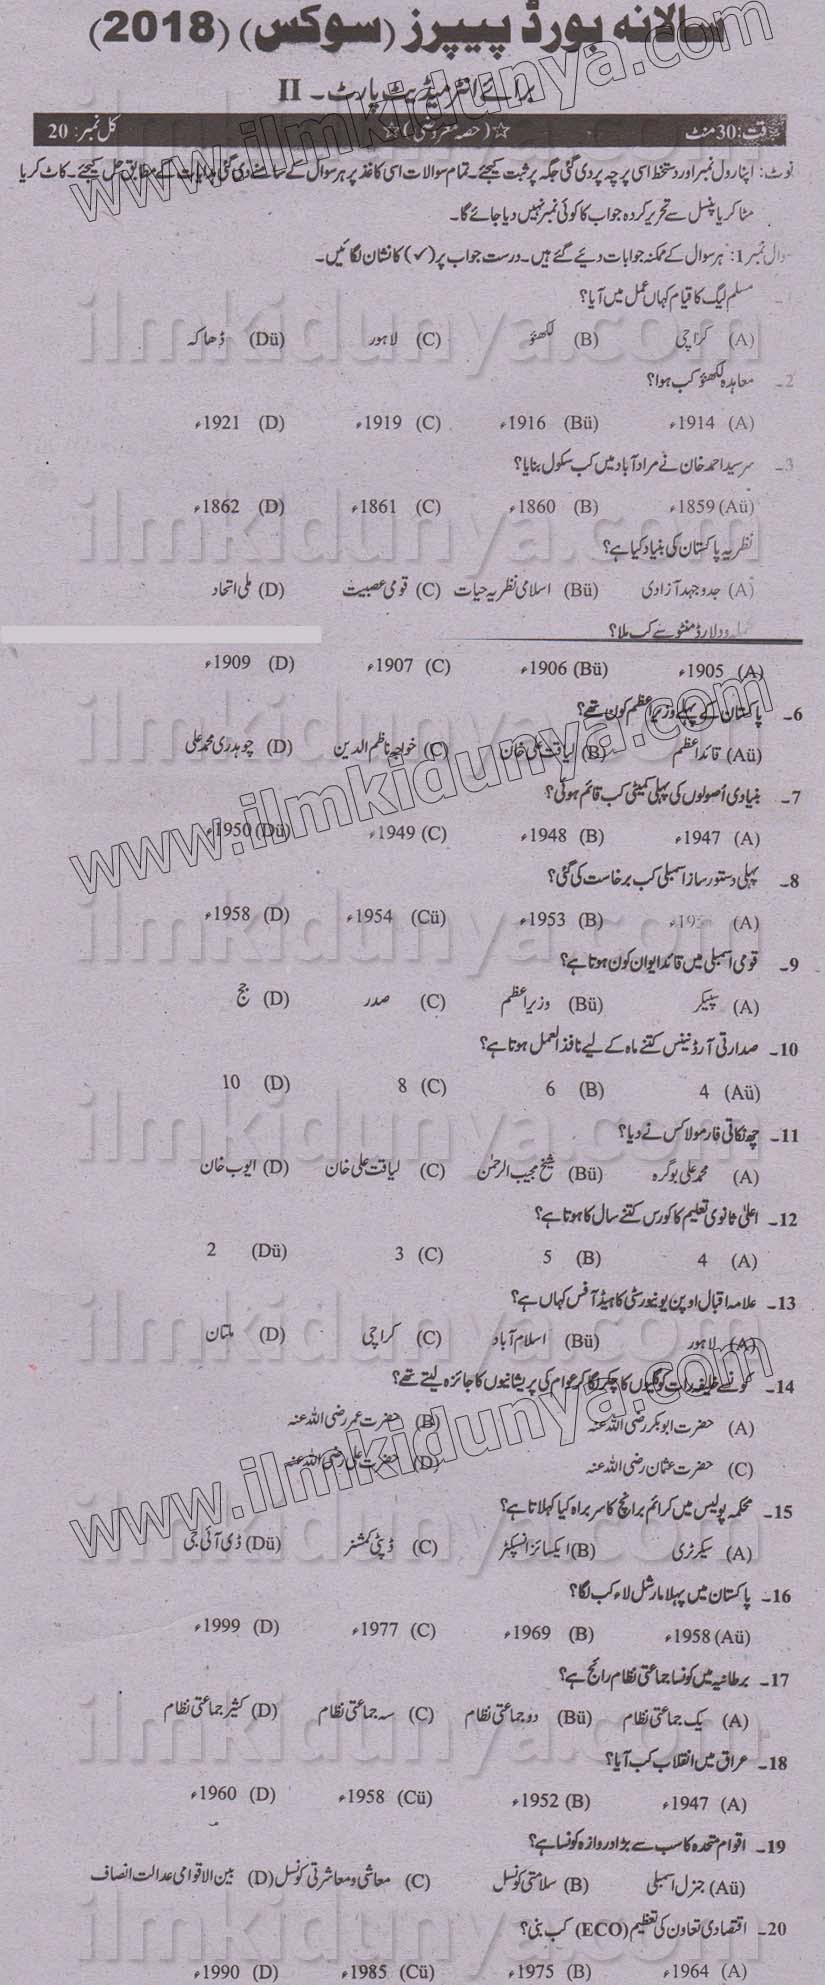 سالانہ بورڈ پیپرز (سوکس) (2018)
برائے انٹرمیڈیٹ پارٹ ۔ II
وقت: 30 منٹ ☆ (حصہ معروضی) ☆ کل نمبر: 20
نوٹ: اپنا رول نمبر اور دستخط اسی پرچہ پر دی گئی جگہ پر ثبت کیجئے۔ تمام سوالات اسی کاغذ پر ہر سوال کے سامنے دی گئی ہدایات کے مطابق حل کیجئے۔ کاٹ کر یا
مٹا کر یا پنسل سے تحریر کردہ جواب کا کوئی نمبر نہیں دیا جائے گا۔
سوال نمبر 1: ہر سوال کے ممکنہ جوابات دیئے گئے ہیں۔ درست جواب پر (✓) کا نشان لگائیں۔
مسلم لیگ کا قیام کہاں عمل میں آیا؟
(A) کراچی (B) لکھنؤ (C) لاہور (Dü) ڈھاکہ
2۔ معاہدہ لکھنؤ کب ہوا؟
(A) 1914ء (Bü) 1916ء (C) 1919ء (D) 1921ء
3۔ سر سید احمد خان نے مراد آباد میں کب سکول بنایا؟
(Aü) 1859ء (B) 1860ء (C) 1861ء (D) 1862ء
نظریہ پاکستان کی بنیاد کیا ہے؟
(A) جدوجہد آزادی (Bü) اسلامی نظریہ حیات (C) قومی عصبیت (D) ملی اتحاد
لارڈ منٹو سے کب ملا؟
(A) 1905ء (Bü) 1906ء (C) 1907ء (D) 1909ء
6۔ پاکستان کے پہلے وزیراعظم کون تھے؟
(Aü) قائداعظم (B) لیاقت علی خان (C) خواجہ ناظم الدین (D) چوہدری محمد علی
7۔ بنیادی اُصولوں کی پہلی کمیٹی کب قائم ہوئی؟
(A) 1947ء (B) 1948ء (C) 1949ء (Dü) 1950ء
8۔ پہلی دستور ساز اسمبلی کب برخاست کی گئی؟
(A) (B) 1953ء (Cü) 1954ء (D) 1958ء
9۔ قومی اسمبلی میں قائد ایوان کون ہوتا ہے؟
(A) سپیکر (Bü) وزیراعظم (C) صدر (D) جج
10۔ صدارتی آرڈیننس کتنے ماہ کے لیے نافذ العمل ہوتا ہے؟
(Aü) 4 (B) 6 (C) 8 (D) 10
11۔ چھ نکاتی فارمولا کس نے دیا؟
(A) محمد علی بوگرہ (Bü) شیخ مجیب الرحمٰن (C) لیاقت علی خان (D) ایوب خان
12۔ اعلیٰ ثانوی تعلیم کا کورس کتنے سال کا ہوتا ہے؟
(A) 4 (B) 5 (C) 3 (Dü) 2
13۔ علامہ اقبال اوپن یونیورسٹی کا ہیڈ آفس کہاں ہے؟
(A) لاہور (Bü) اسلام آباد (C) کراچی (D) ملتان
14۔ کونسے خلیفہ رات کو گلیوں کا چکر لگا کر عوام کی پریشانیوں کا جائزہ لیتے تھے؟
(A) حضرت ابوبکر رضی اللہ عنہ (B) حضرت عمر رضی اللہ عنہ
(C) حضرت عثمان رضی اللہ عنہ (D) حضرت علی رضی اللہ عنہ
15۔ محکمہ پولیس میں کرائم برانچ کا سربراہ کیا کہلاتا ہے؟
(A) سیکرٹری (B) ایکسائز انسپکٹر (C) ڈپٹی کمشنر (Dü) ڈی آئی جی
16۔ پاکستان میں پہلا مارشل لاء کب لگا؟
(Aü) 1958ء (B) 1969ء (C) 1977ء (D) 1999ء
17۔ برطانیہ میں کونسا جماعتی نظام رائج ہے؟
(A) یک جماعتی نظام (Bü) دو جماعتی نظام (C) سہ جماعتی نظام (D) کثیر جماعتی نظام
18۔ عراق میں انقلاب کب آیا؟
(A) 1947ء (B) 1952ء (Cü) 1958ء (D) 1960ء
19۔ اقوام متحدہ کا سب سے بڑا دروازہ کونسا ہے؟
(Aü) جنرل اسمبلی (B) سلامتی کونسل (C) معاشی و معاشرتی کونسل (D) بین الاقوامی عدالت انصاف
20۔ اقتصادی تعاون کی تنظیم (ECO) کب بنی؟
(A) 1964ء (B) 1975ء (Cü) 1985ء (D) 1990ء
www.ilmkidunya.com
ilmkidunya.com
ilmkidunya.com
ilmkidunya.com
www.ilmkidunya.com
ilmkidunya.com
ilmkidunya.com
ilmkidunya.com
www.ilmkidunya.com
ilmkidunya.com
ilmkidunya.com
ilmkidunya.com